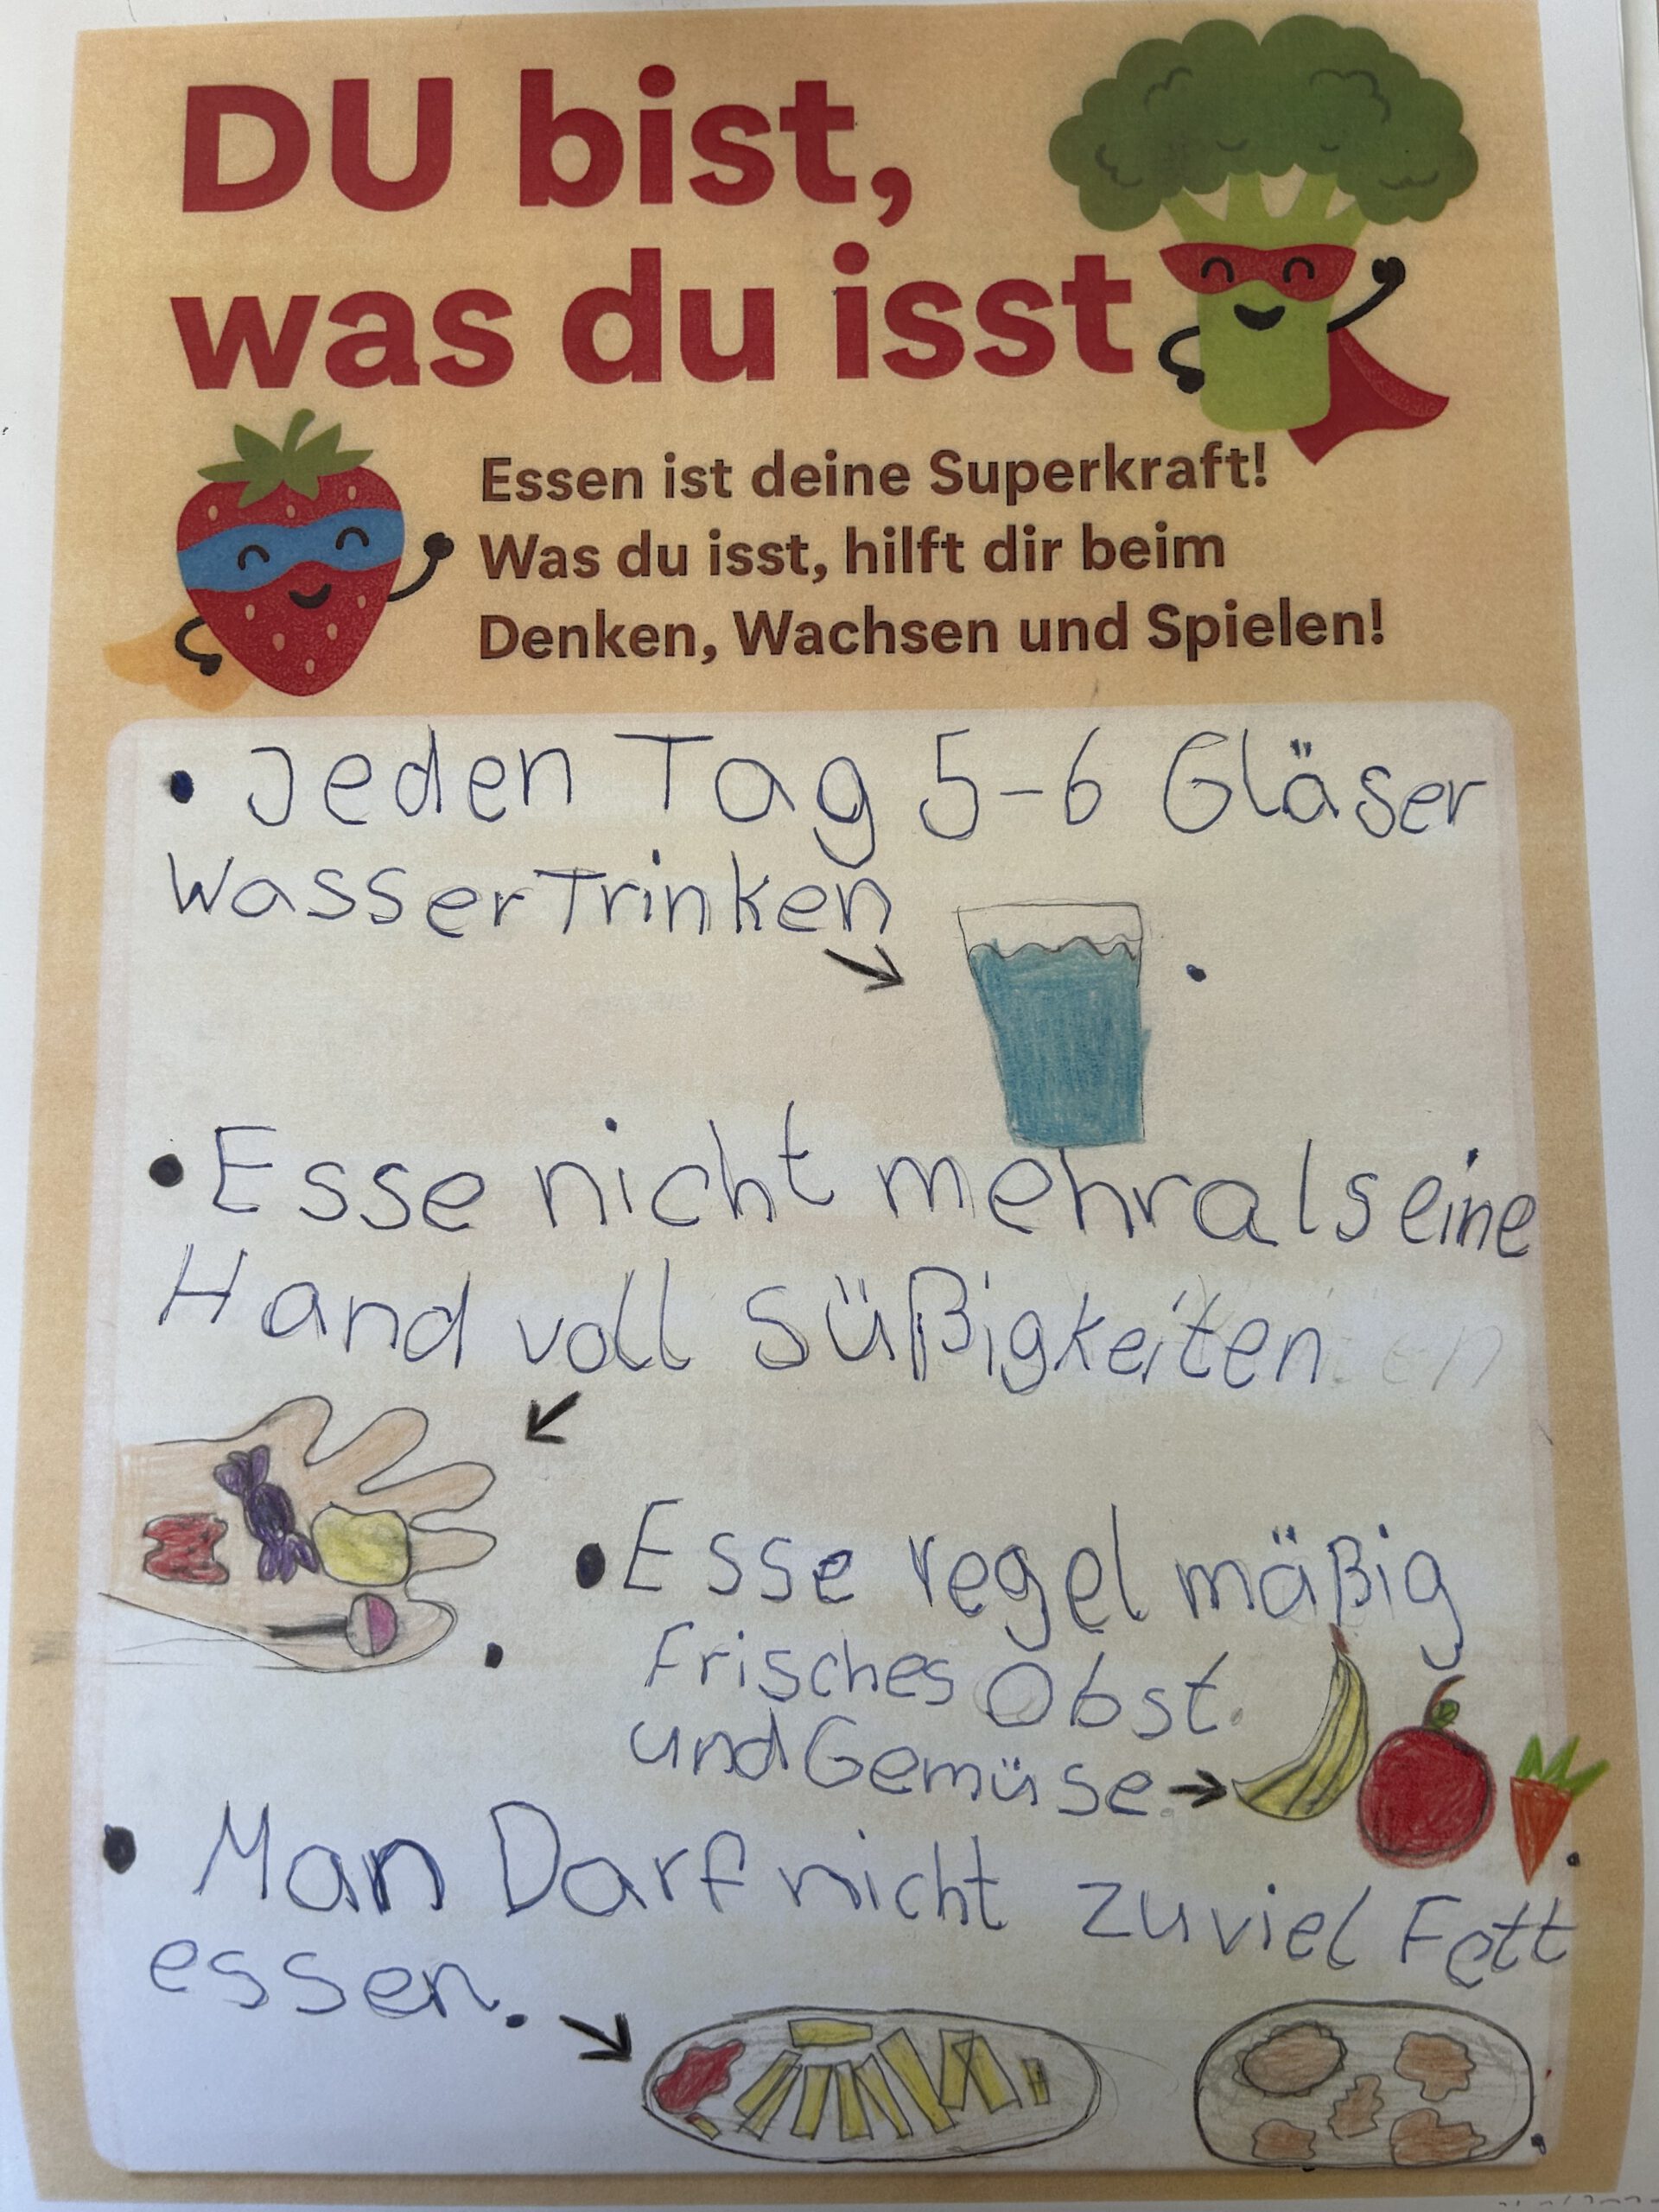 DU bist,
was du isst
Essen ist deine Superkraft!
Was du isst, hilft dir beim
Denken, Wachsen und Spielen!
• Jeden Tag 5-6 Gläser
Wasser Trinken
• Esse nicht mehr als eine
Hand voll Süßigkeiten
• Esse regelmäßig
frisches Obst
und Gemüse
• Man Darf nicht zuviel Fett
essen.